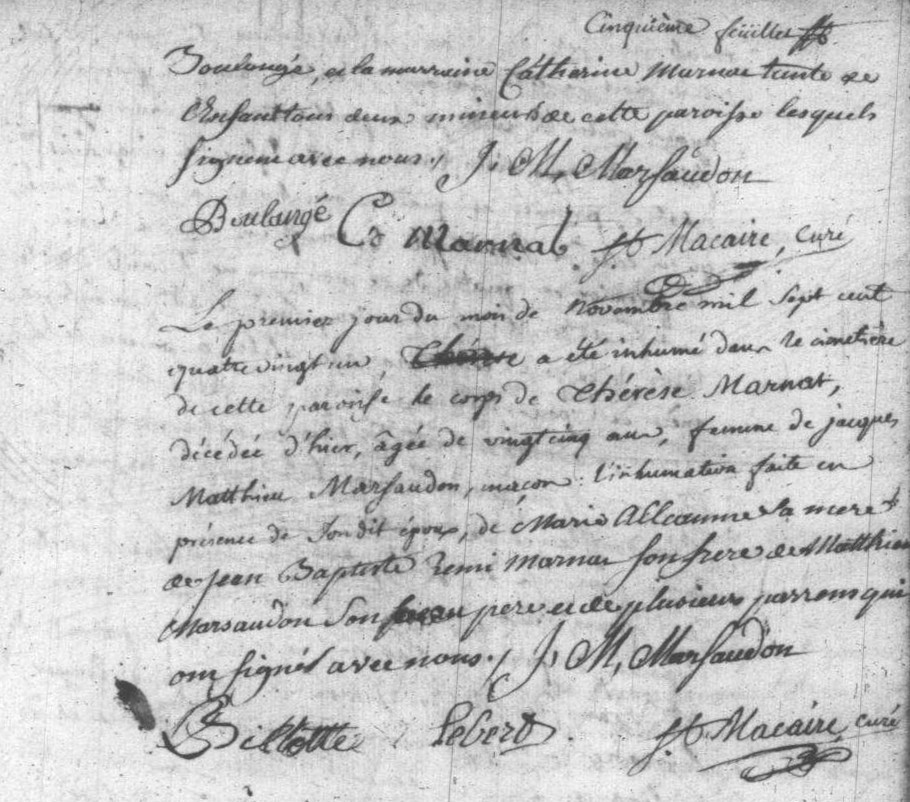 Cinquième feüillet
Boulangé, et la marraine Catherine Marnat tante de
l'Enfant tous deux mineurs de cette paroisse lesquels
signent avec nous. J. M. Marsaudon
Boulangé C Marnat St Macaire, Curé
Le premier jour du mois de Novembre mil sept cent
quatre vingt un, a été inhumé dans le cimetière
de cette paroisse le corps de Thérèse Marnat,
décédée d'hier, âgée de vingt cinq ans, femme de jacques
Matthieu Marsaudon, maçon : l'inhumation faite en
présence de Son dit époux, de Marie Alleaume Sa mere
de Jean Baptiste Remi Marnat Son frere de Matthieu
Marsaudon Son beau pere et de plusieurs parens qui
ont signés avec nous. J. M. Marsaudon
Billotte Lebert St Macaire, curé